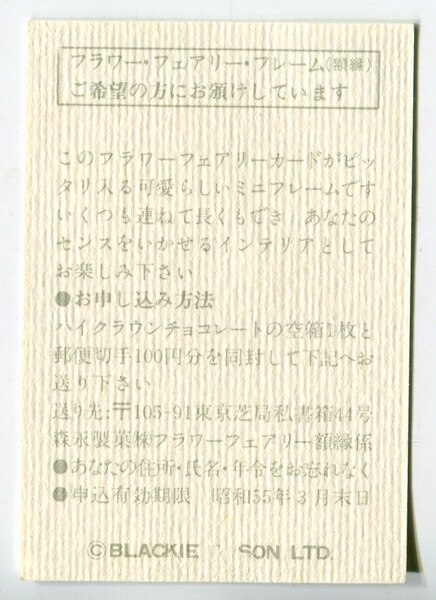 フラワー・フェアリー・フレーム(額縁)
ご希望の方にお頒けしています
このフラワーフェアリーカードがピッ
タリ入る可愛らしいミニフレームです
いくつも連ねて長くもでき，あなたの
センスをいかせるインテリアとして
お楽しみ下さい
●お申し込み方法
ハイクラウンチョコレートの空箱1枚と
郵便切手100円分を同封して下記へお
送り下さい
送り先:〒105-91東京芝局私書箱44号
森永製菓㈱フラワーフェアリー額縁係
●あなたの住所・氏名・年令をお忘れなく
●申込有効期限　昭和55年3月末日
©BLACKIE SON LTD.